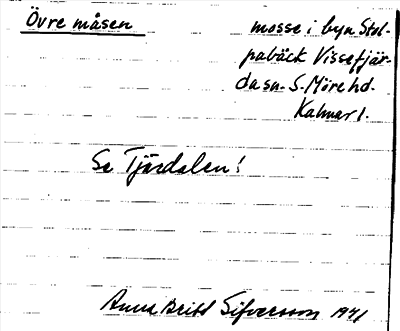 Övre måsen
mosse i byn Stol-
pabäck Vissefjär-
da sn. S. Möre hd.
Kalmar l.
Se Tjärdalen!
Anna Britt Sifversson 1941